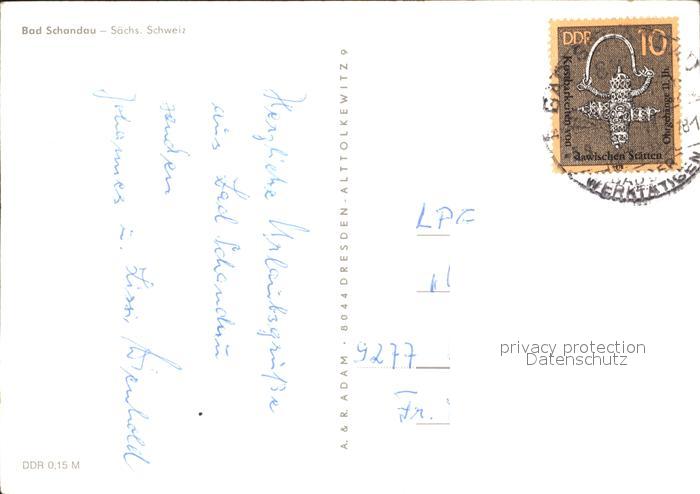 Bad Schandau – Sächs. Schweiz
Herzliche Urlaubsgrüße
aus Bad Schandau
senden
Johannes u. Lissi Wienhold
A. & R. ADAM · 8044 DRESDEN-ALTTOLKEWITZ 9
DDR 0,15 M
DDR 10
Kostbarkeiten von
slawischen Stätten
Ohrgehänge 11. Jh.
WERKTÄTIGEN
LPG
9277
Fr.
privacy protection
Datenschutz